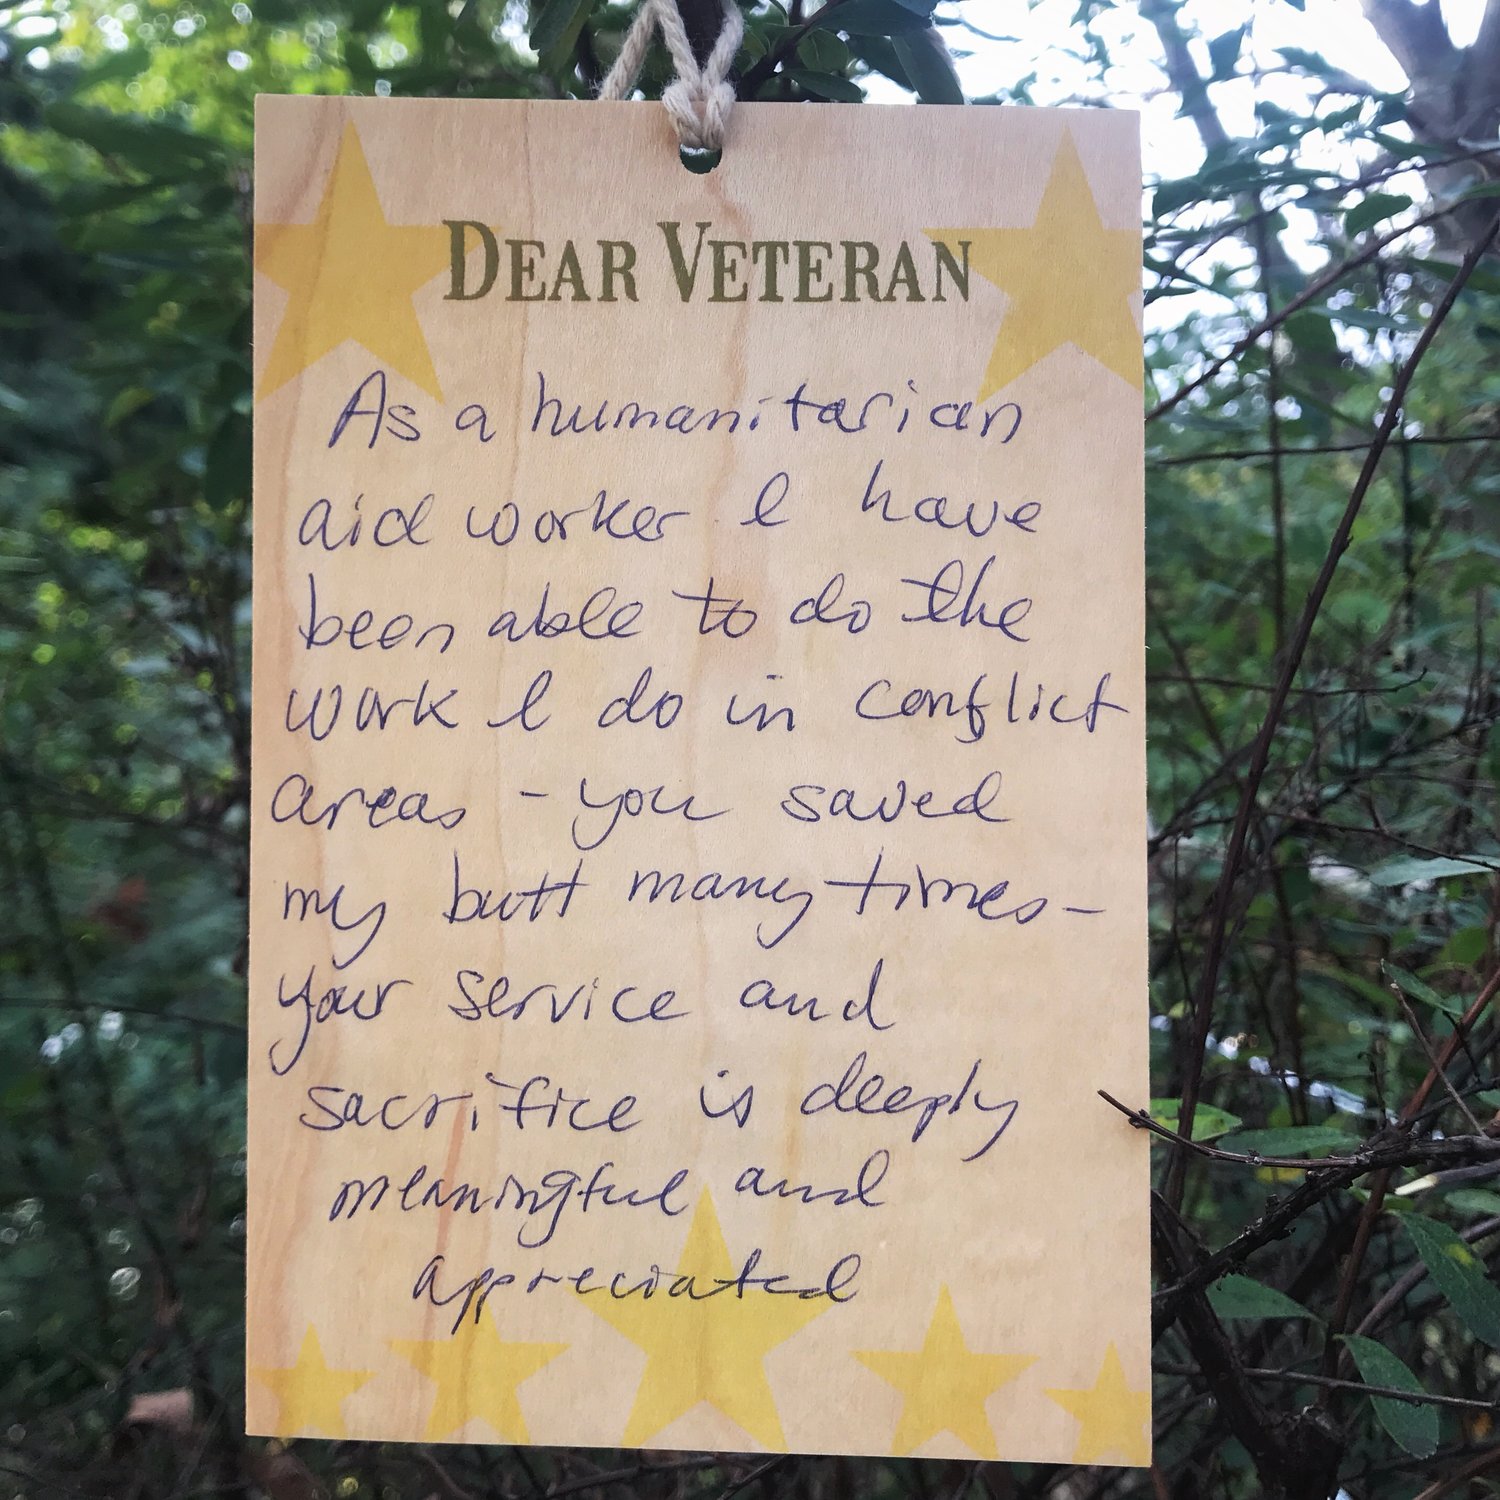 DEAR VETERAN
As a humanitarian
aid worker I have
been able to do the
work I do in conflict
areas - you saved
my butt many times -
your service and
sacrifice is deeply
meaningful and
appreciated